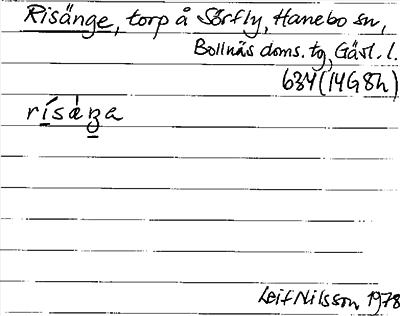 Risänge, torp å Sörfly, Hanebo sn,
Bollnäs doms. tg, Gävl. l.
634 (14G8h)
rísæ̀ŋa
Leif Nilsson 1978